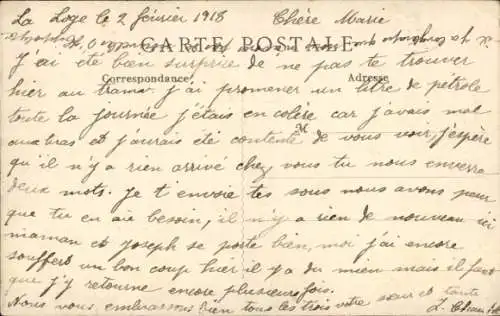 La Loge le 2 février 1918 Chère Marie
CARTE POSTALE
J'ai été bien surprise de ne pas te trouver
Correspondance Adresse
hier au tram j'ai promener un litre de pétrole
toute la journée j'étais en colère car j'avais mal
aux bras et j'aurais été contente de vous voir, j'espère
qu'il n'y a rien arrivé chez vous tu nous enverra
deux mots. Je t'envoie tes sous nous avons peur
que tu en aie besoin, il n'y a rien de nouveau ici
maman et Joseph se porte bien, moi j'ai encore
souffert un bon coup hier il y a du mien mais il faut
que j'y retourne encore plusieurs fois.
Nous vous embrassons bien tous les trois votre sœur et tante